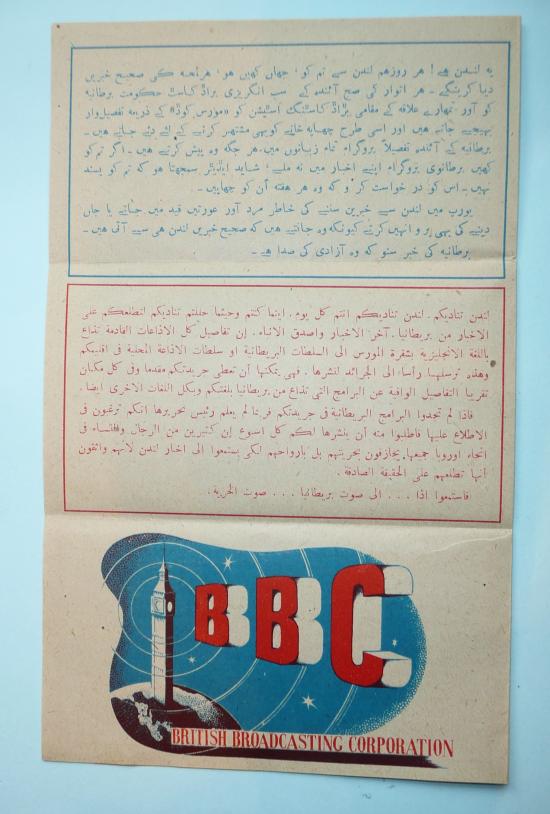 یه لندن هے! هر روزهم لندن سے تم کو، جہاں کہیں هو، هرلمحه کی صحیح خبریں
دیا کرینگے۔ هر اتوار کی صبح آئنده کے سب انگریزی براڈ کاسٹ حکومت برطانیه
کو اور تمہارے علاقه کے مقامی براڈ کاسٹنگ اسٹیشن کو «مورس کوڈ» کے ذریعه تفصیلوار
بھیجے جاتے هیں اور اسی طرح چھاپه خانے کوبھی مشتهر کرنے کے لئے دئے جاتے هیں۔
برطانیه کے آئنده تفصیلاً پروگرام تمام زبانوں میں، هر جگه وه پیش کرتے هیں۔ اگر تم کو
کہیں برطانوی پروگرام اپنے اخبار میں نه ملے، شاید ایڈیٹر سمجھتا هو که تم کو پسند
نہیں۔ اس کو در خواست کر و که وه هر هفته اُن کو چھاپیں۔
یورپ میں لندن سے خبریں سننے کی خاطر مرد اور عورتیں قید میں جانے یا جان
دینے کی بھی پر و انہیں کرتے کیونکه وه جانتے هیں که صحیح خبریں لندن هی سے آتی هیں۔
برطانیه کی خبر سنو که وه آزادی کی صدا هے۔
لندن تناديكم. لندن تناديكم انتم كل يوم. اينما كنتم وحيثما حللتم تناديكم لتطلعكم على
الاخبار من بريطانيا. آخر الاخبار واصدق الانباء. إن تفاصيل كل الاذاعات القادمة تذاع
باللغة الانجليزية بشفرة المورس الى السلطات البريطانية او سلطات الاذاعة المحلية فى اقليمكم
وهذه ترسلها رأسا الى الجرائد لنشرها. فهى يمكنها أن تعطى جريدتكم مقدما وفى كل مكان
تقريبا التفاصيل الوافية عن البرامج التى تذاع من بريطانيا بلغتكم وبكل اللغات الاخرى ايضا.
فاذا لم تجدوا البرامج البريطانية فى جريدتكم فربما لم يعلم رئيس تحريرها انكم ترغبون فى
الاطلاع عليها فاطلبوا منه أن ينشرها لكم كل اسبوع إن كثيرين من الرجال والنساء فى
انحاء اوروبا جميعها. يجازفون بحريتهم بل بارواحهم لكى يستمعوا الى اخبار لندن لانهم واثقون
أنها تطلعهم على الحقيقة الصادقة.
فاستمعوا اذا . . . الى صوت بريطانيا . . . صوت الحرية.
BBC
BRITISH BROADCASTING CORPORATION